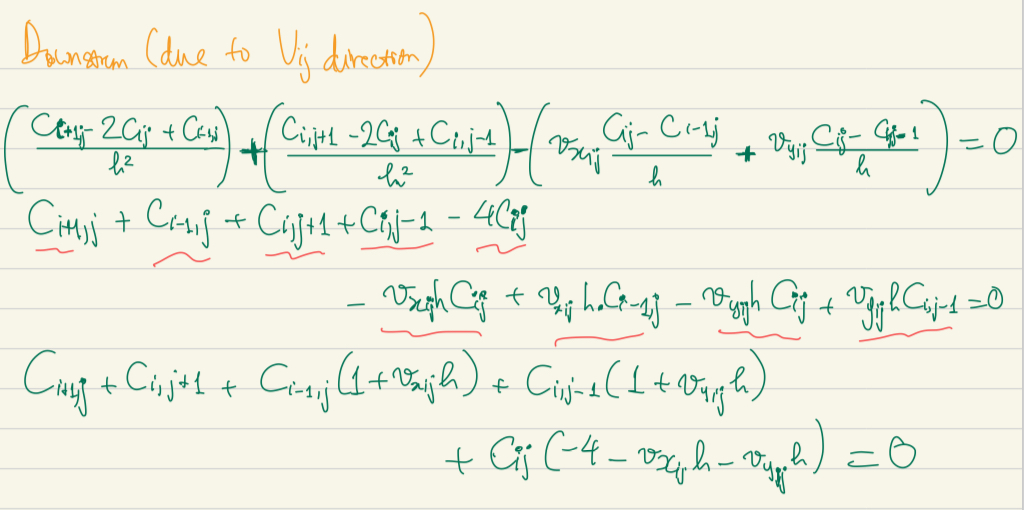 Downstream (due to Vij direction)
((Ci+1,j - 2Cij + Ci-1,j)/h²) + ((Ci,j+1 - 2Cij + Ci,j-1)/h²) - (vxij (Cij - Ci-1,j)/h + vyij (Cij - Cij-1)/h) = 0
Ci+1,j + Ci-1,j + Ci,j+1 + Ci,j-1 - 4Cij
- vxijh Cij + vxij h.Ci-1,j - vyijh Cij + vyijh Ci,j-1 = 0
Ci+1,j + Ci,j+1 + Ci-1,j (1 + vxijh) + Ci,j-1 (1 + vyijh)
+ Cij (-4 - vxijh - vyijh) = 0